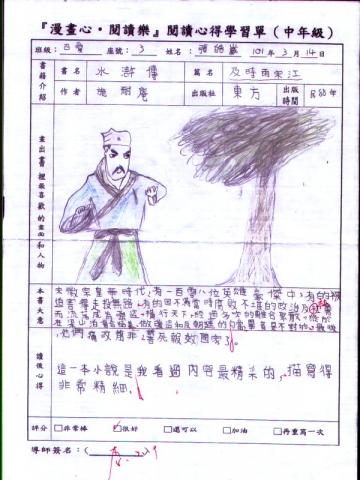 『漫畫心‧閱讀樂』閱讀心得學習單(中年級)
班級:四愛 座號:3 姓名: 101年3月14日
書籍介紹 書名 水滸傳 篇名 及時雨宋江
作者 施耐庵 出版社 東方 出版時間 民88年
畫出書裡最喜歡的畫面和人物
本書大意
宋徽宗皇帝時代,有一百零八位英雄豪傑中,有的被
迫害得走投無路,有的因不滿當時腐敗不堪的政治
而流落成為盜,橫行天下,經過多次的離合聚散,終於
在梁山泊
他們痛改前非,誓死報效國家了。
讀後心得
這一本小說是我看過內容最精采的,描寫得
非常精細。
評分 □非常棒 ☑很好 □還可以 □加油 □再重寫一次
導師簽名:(